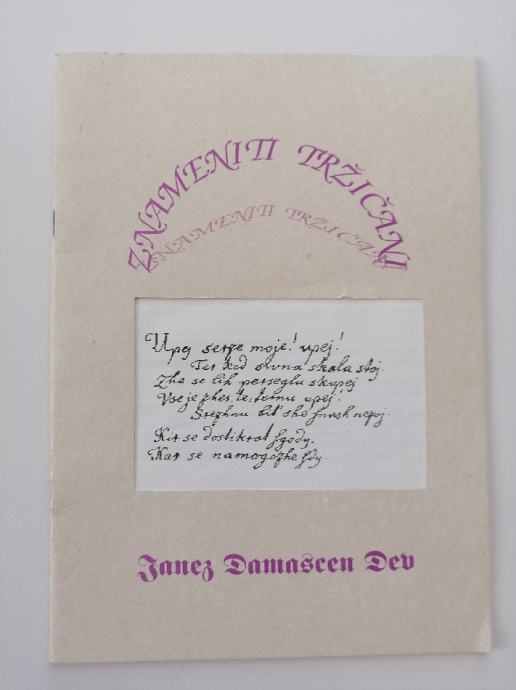 ZNAMENITI TRŽIČANI
ZNAMENITI TRŽIČANI
Upej serze moje! upej!
Ter kod sivna skala stoj.
Zhe se lih perseglu skupej
Vse je zhes te, temu upej!
Srezhnu bit' she snash nepoj.
Kir se dostikrat sgody,
Kar se namogozhe sdy.
Janez Damascen Dev